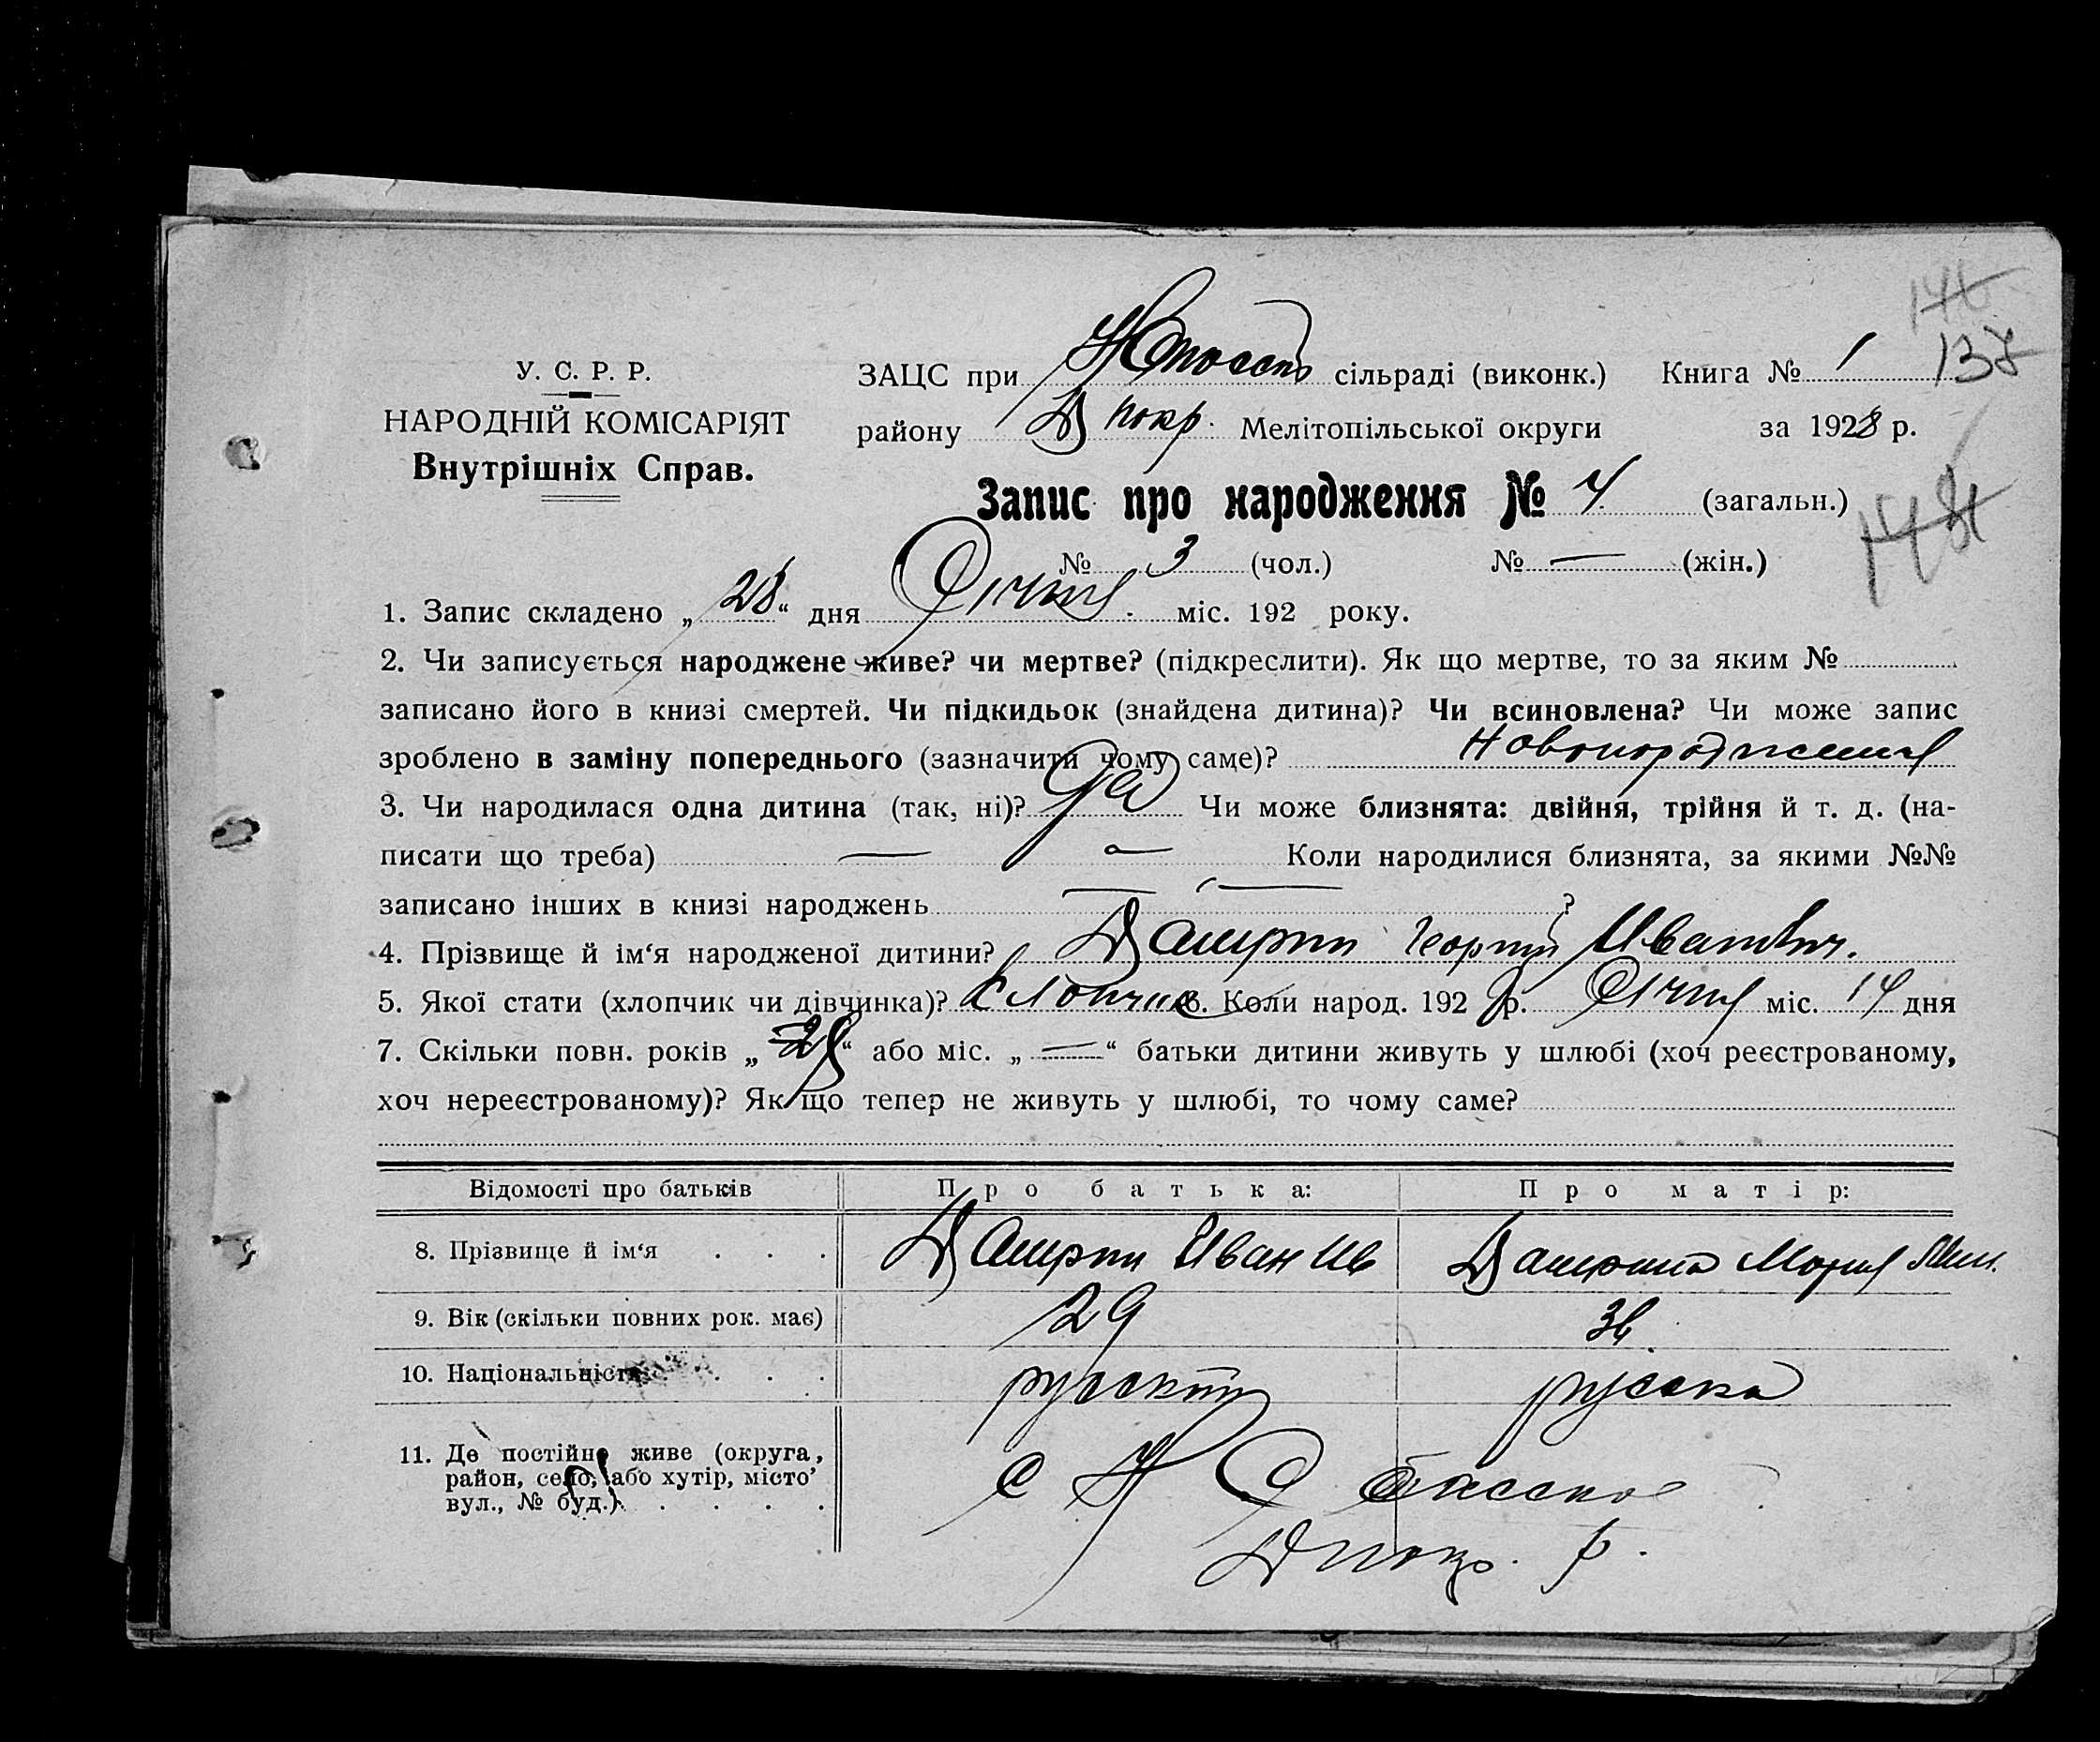 146
У. С. Р. Р.
НАРОДНІЙ КОМІСАРІЯТ
Внутрішніх Справ.
ЗАЦС при сільраді (виконк.) Книга № 1 137
району Д покр. Мелітопільської округи за 1928 р.
Запис про народження № 4. (загальн.)
№ 3 (чол.) № — (жін.)
1. Запис складено „ 28 “ дня Січня міс. 192 року.
2. Чи записується народжене живе? чи мертве? (підкреслити). Як що мертве, то за яким №
записано його в книзі смертей. Чи підкидьок (знайдена дитина)? Чи всиновлена? Чи може запис
зроблено в заміну попереднього (зазначити чому саме)?
3. Чи народилася одна дитина (так, ні)? Чи може близнята: двійня, трійня й т. д. (на-
писати що треба) — — Коли народилися близнята, за якими №№
записано інших в книзі народжень — — ?
4. Прізвище й ім‘я народженої дитини? Георгий Иванович.
5. Якої стати (хлопчик чи дівчинка)? Хлопчик 6. Коли народ. 192 8 р. Січня міс. 14 дня
7. Скільки повн. років „ “ або міс. „ — “ батьки дитини живуть у шлюбі (хоч реєстрованому,
хоч нереєстрованому)? Як що тепер не живуть у шлюбі, то чому саме?
Відомості про батьків Про батька: Про матір:
8. Прізвище й ім‘я . . . Иван Ив Мария
9. Вік (скільки повних рок. має) 29
10. Національність . . . русский русска
11. Де постійно живе (округа,
район, село, або хутір, місто
вул., № буд.) . . . . с Н Спасское
Д покр. р.